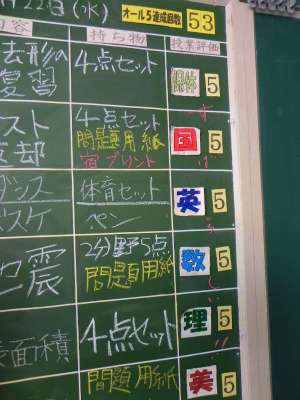 22日(水) オール5達成回数 53
内容 持ち物 授業評価
去形の
復習 4点セット 保体 5
スト
返却 4点セット
問題専用紙
宿プリント 国 5
ダンス
バスケ 体育セット
ペン 英 5
地震 2分野5点
問題用紙 数 5
表面積 4点セット 理 5
問題用紙 美 5
すばらしい!!